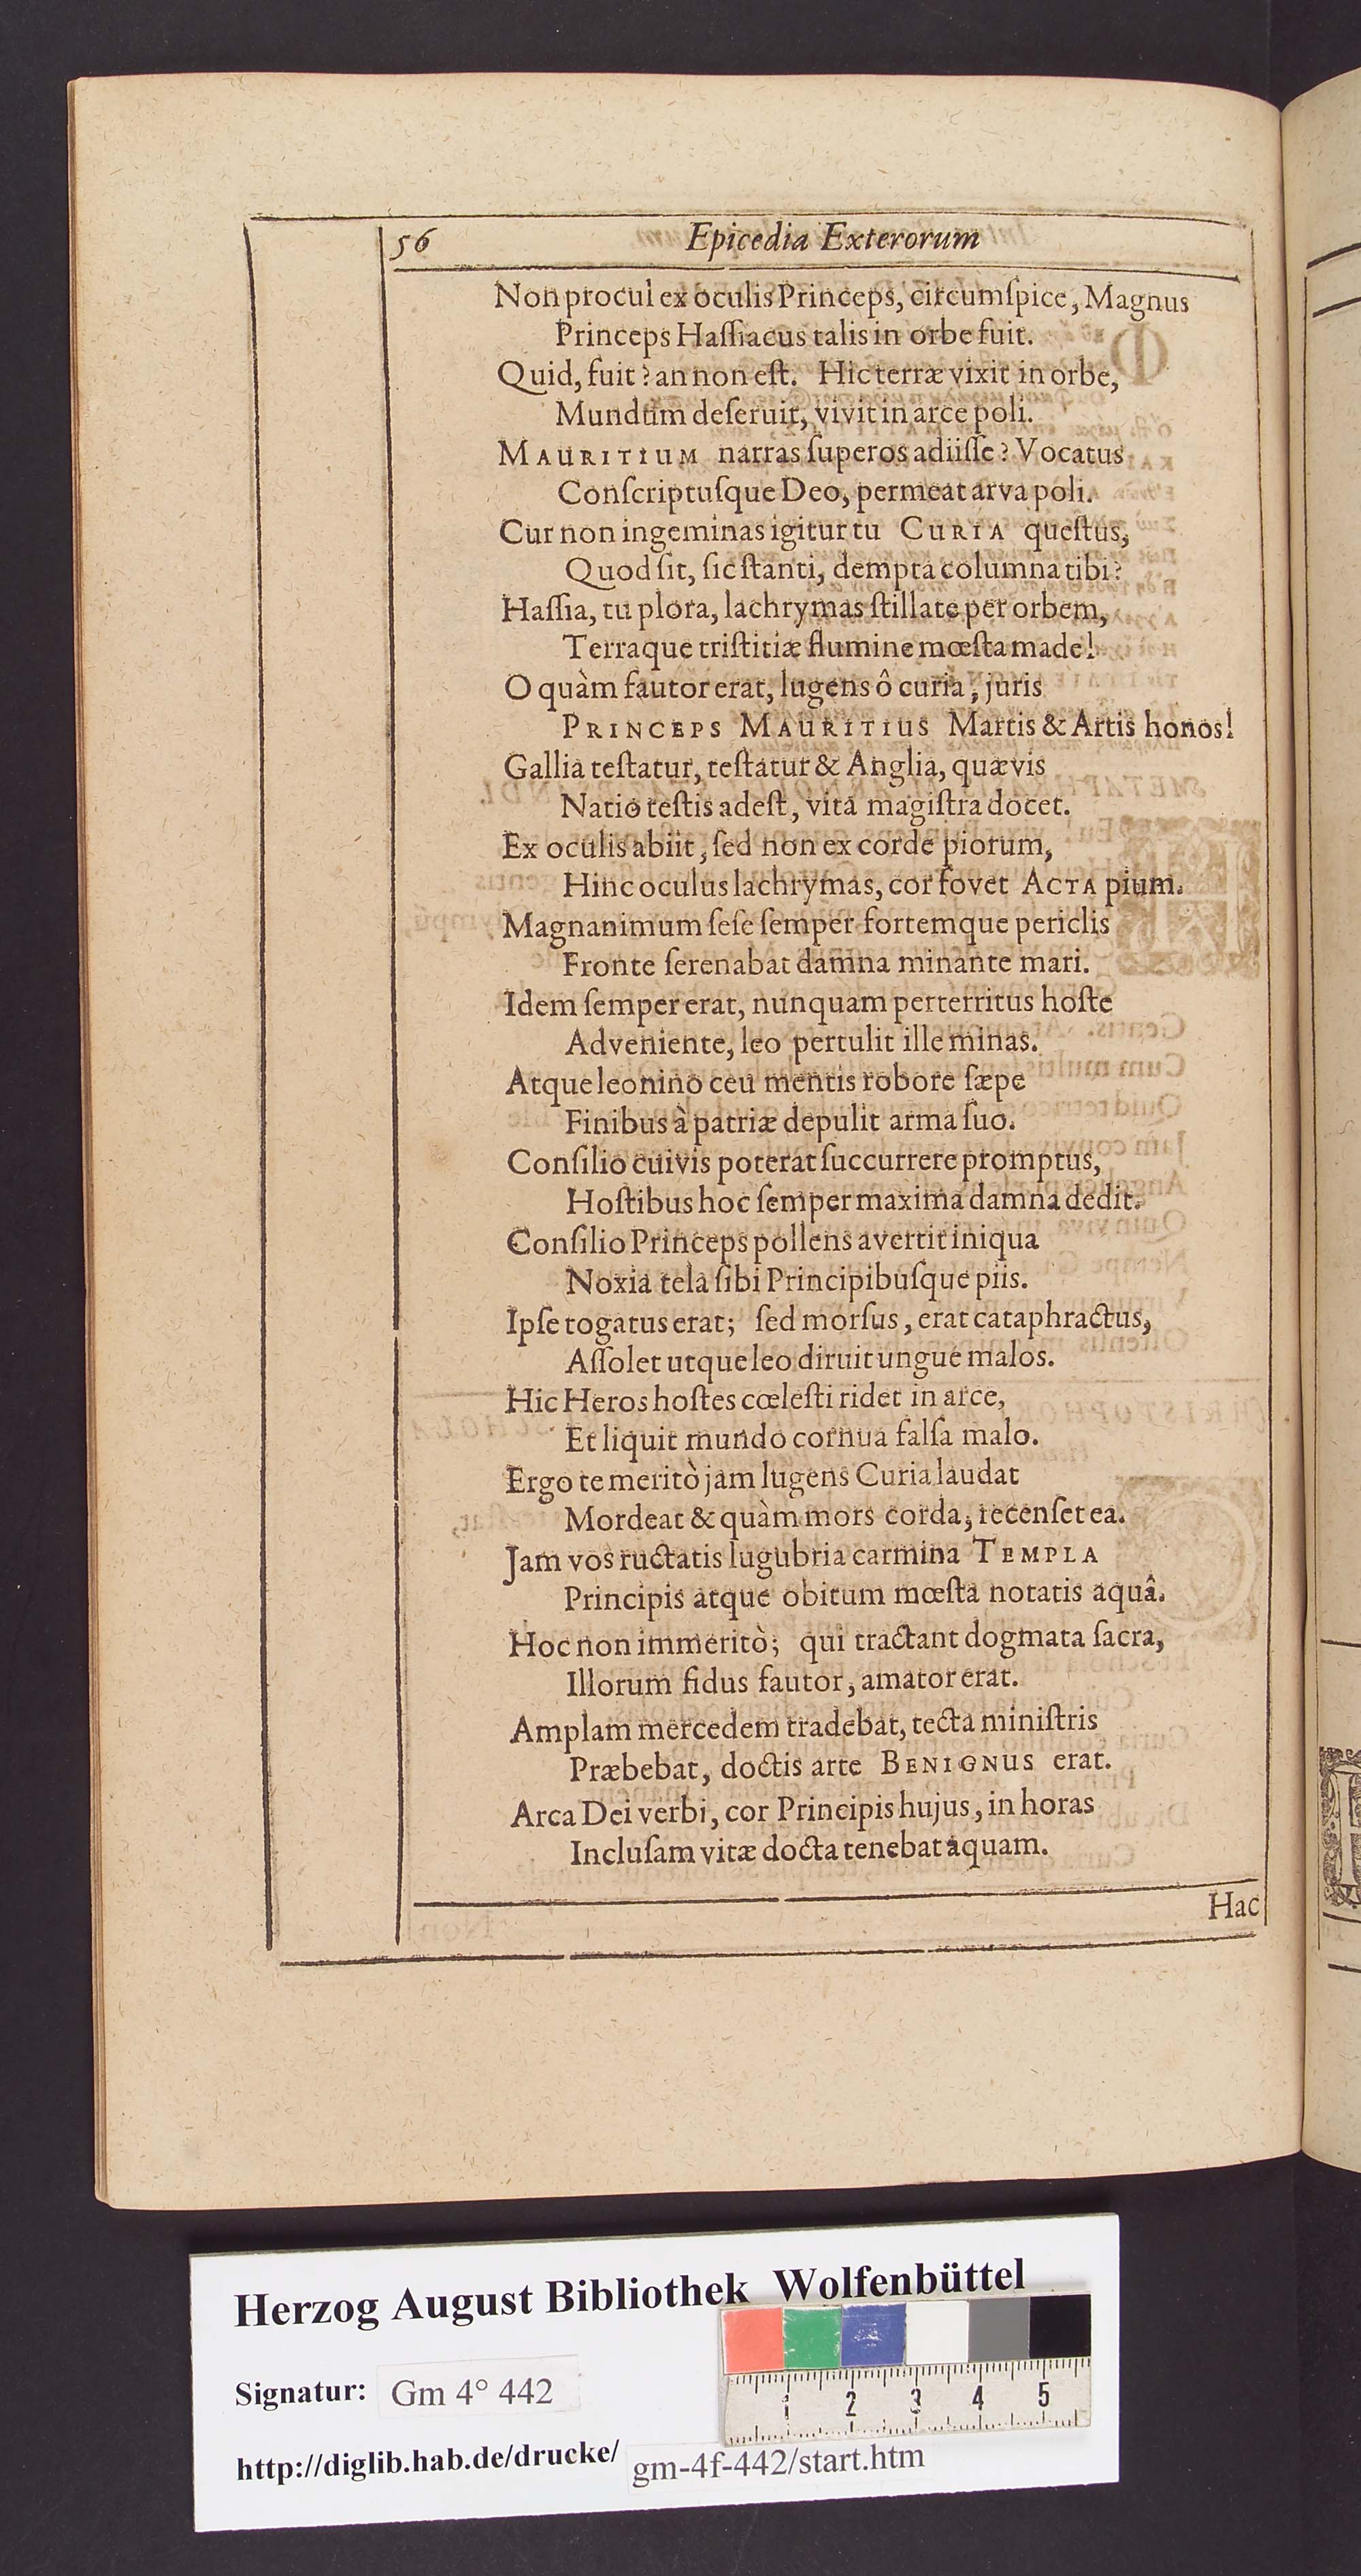 56 Epicedia Exterorum
Non procul ex oculis Princeps, circumſpice, Magnus
Princeps Haſſiacus talis in orbe fuit.
Quid, fuit? an non eſt. Hic terræ vixit in orbe,
Mundum deſeruit, vivit in arce poli.
MAURITIUM narras ſuperos adiiſſe? Vocatus
Conſcriptuſque Deo, permeat arva poli.
Cur non ingeminas igitur tu CURIA queſtus,
Quod ſit, ſic ſtanti, dempta columna tibi?
Haſſia, tu plora, lachrymas ſtillate per orbem,
Terraque triſtitiæ flumine mœſta made!
O quàm fautor erat, lugens ô curia, juris
PRINCEPS MAURITIUS Martis & Artis honos!
Gallia teſtatur, teſtatur & Anglia, quævis
Natio teſtis adeſt, vita magiſtra docet.
Ex oculis abiit, ſed non ex corde piorum,
Hinc oculus lachrymas, cor fovet ACTA pium.
Magnanimum ſeſe ſemper fortemque periclis
Fronte ſerenabat damna minante mari.
Idem ſemper erat, nunquam perterritus hoſte
Adveniente, leo pertulit ille minas.
Atque leonino ceu mentis robore ſæpe
Finibus à patriæ depulit arma ſuo.
Conſilio cuivis poterat ſuccurrere promptus,
Hoſtibus hoc ſemper maxima damna dedit.
Conſilio Princeps pollens avertit iniqua
Noxia tela ſibi Principibuſque piis.
Ipſe togatus erat; ſed morſus, erat cataphractus,
Aſſolet utque leo diruit ungue malos.
Hic Heros hoſtes cœleſti ridet in arce,
Et liquit mundo cornua falſa malo.
Ergo te meritò jam lugens Curia laudat
Mordeat & quàm mors corda, recenſet ea.
Jam vos ructatis lugubria carmina TEMPLA
Principis atque obitum mœſta notatis aquâ.
Hoc non immeritò; qui tractant dogmata ſacra,
Illorum fidus fautor, amator erat.
Amplam mercedem tradebat, tecta miniſtris
Præbebat, doctis arte BENIGNUS erat.
Arca Dei verbi, cor Principis hujus, in horas
Incluſam vitæ docta tenebat aquam.
Hac
Herzog August Bibliothek Wolfenbüttel
Signatur: Gm 4° 442
http://diglib.hab.de/drucke/ gm-4f-442/start.htm
1 2 3 4 5